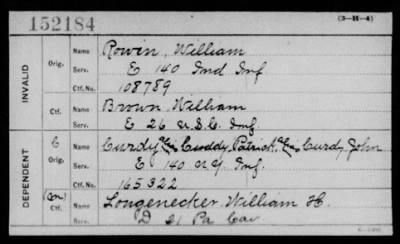 152184
(3-H-4)
INVALID
Orig.
Name Rowin, William
Serv. E 140 Ind Inf
Ctf. No. 108789
Ctf.
Name Brown, William
Serv. E 26 U.S.C. Inf.
DEPENDENT
C
Orig.
Name Curdy Cuddy, Patrick, Curdy, John
Serv. E 140 N.Y. Inf.
Ctf. No. 165322
Ctf.
Name Longenecker, William H.
Serv. D 21 Pa Cav